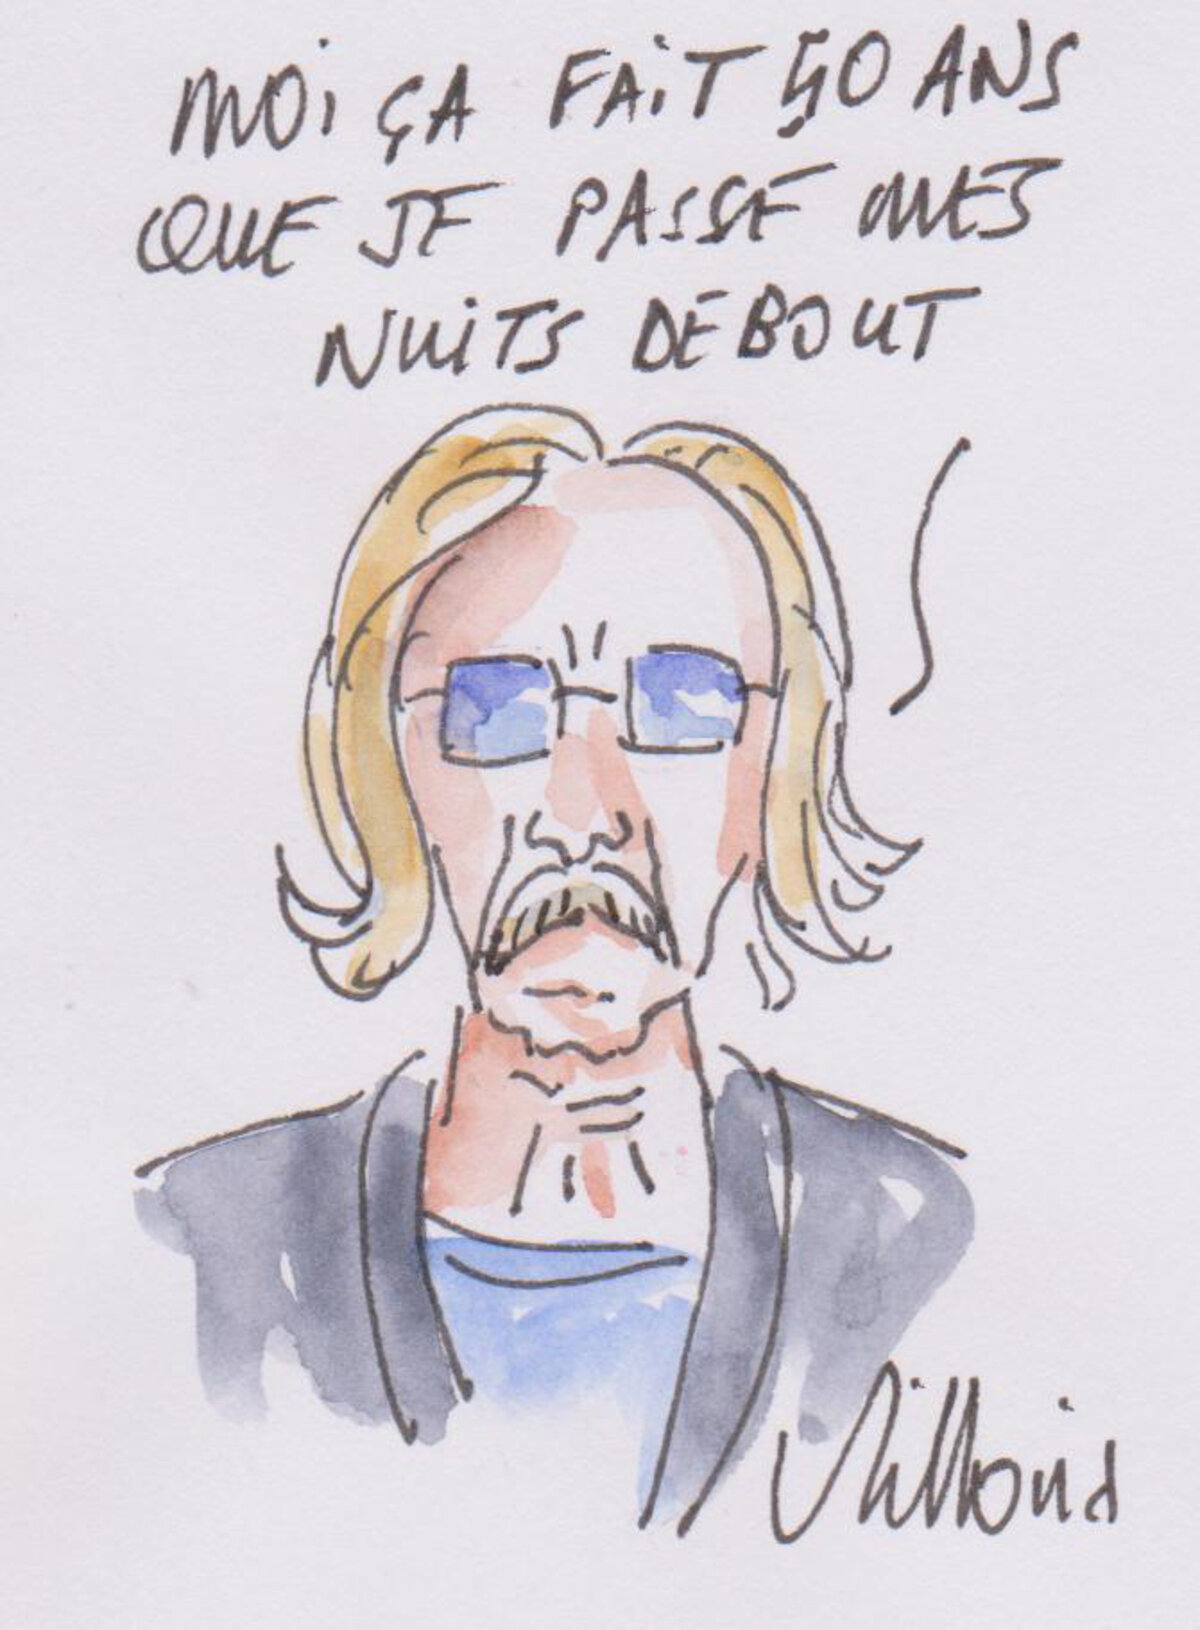 MOI ÇA FAIT 50 ANS
QUE JE PASSE MES
NUITS DEBOUT
Villoid